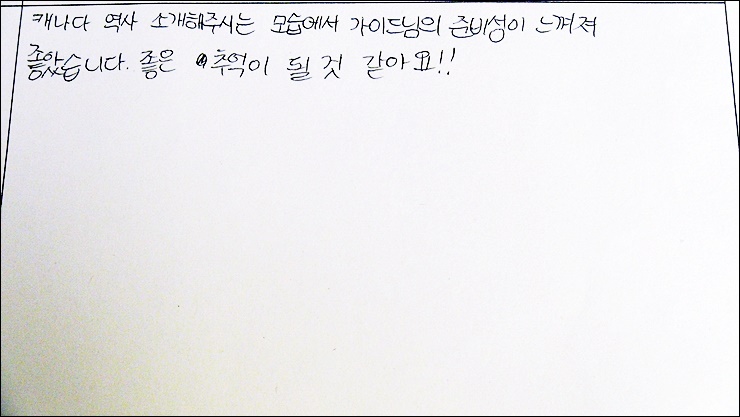 캐나다 역사 소개해주시는 모습에서 가이드님의 준비성이 느껴져
좋았습니다. 좋은 추억이 될 것 같아요!!